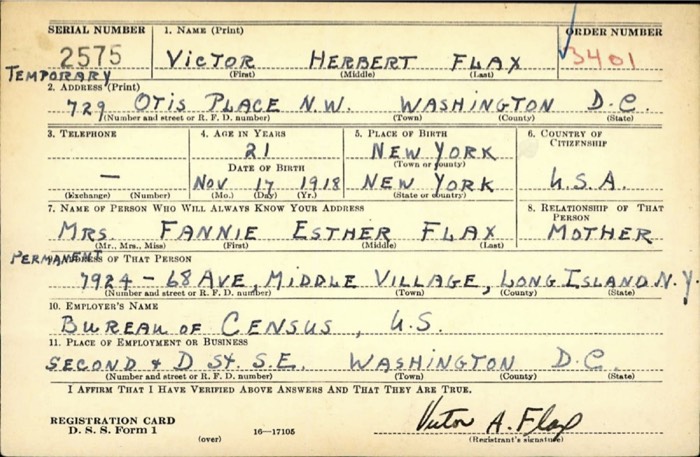 SERIAL NUMBER 1. NAME (Print) ORDER NUMBER
2575 VICTOR HERBERT FLAX 3401
(First) (Middle) (Last)
TEMPORARY
2. ADDRESS (Print)
729 OTIS PLACE N.W. WASHINGTON D.C.
(Number and street or R. F. D. number) (Town) (County) (State)
3. TELEPHONE 4. AGE IN YEARS 5. PLACE OF BIRTH 6. COUNTRY OF CITIZENSHIP
21 NEW YORK
DATE OF BIRTH (Town or county)
— NOV 17 1918 NEW YORK U.S.A.
(Exchange) (Number) (Mo.) (Day) (Yr.) (State or country)
7. NAME OF PERSON WHO WILL ALWAYS KNOW YOUR ADDRESS 8. RELATIONSHIP OF THAT PERSON
MRS. FANNIE ESTHER FLAX MOTHER
(Mr., Mrs., Miss) (First) (Middle) (Last)
PERMANENT
OF THAT PERSON
7924 - 68 AVE, MIDDLE VILLAGE, LONG ISLAND N.Y.
(Number and street or R. F. D. number) (Town) (County) (State)
10. EMPLOYER'S NAME
BUREAU OF CENSUS, U.S.
11. PLACE OF EMPLOYMENT OR BUSINESS
SECOND & D St. S.E. WASHINGTON D.C.
(Number and street or R. F. D. number) (Town) (County) (State)
I AFFIRM THAT I HAVE VERIFIED ABOVE ANSWERS AND THAT THEY ARE TRUE.
REGISTRATION CARD
D. S. S. Form 1 (over) 16—17105
Victor A. Flax
(Registrant's signature)